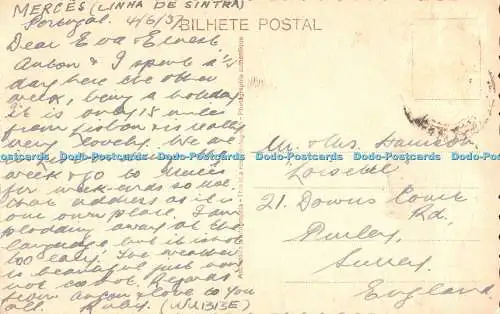 MERCÊS (LINHA DE SINTRA)
Portugal. 4/6/57
BILHETE POSTAL
Dear Eva & Ernest
Anton & I spent a ½
day here the other
week, being a holiday
it is only 15 mils
from Lisbon & is really
very lovely. We are
week & go to Mercês
for week-ends so note
that address as it is
our own place. I am
plodding away at the
language, but it is not
too easy. The weather
is beautiful just now
not too hot. Regards
from Anton & love to you
all. Ruby.
Mr. & Mrs. Harrison
21. Downs Court
Rd.
Purley,
Surrey.
England.
Dodo-Postcards Dodo-Postcards Dodo-Postcards Dodo-Postcards Dodo-Postcards